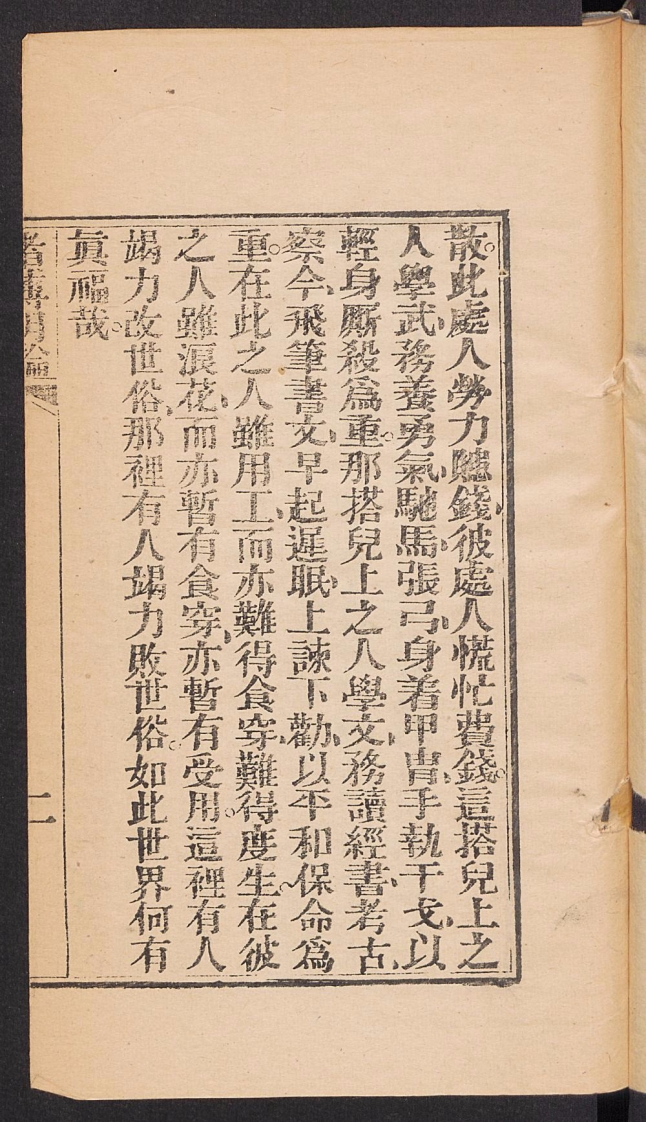 散。此處人勞力賺錢、彼處人慌忙費錢。這搭兒上之
人學武、務養勇氣、馳馬、張弓、身着甲冑、手執干戈、以
輕身厮殺爲重。那搭兒上之人學文、務讀經書、考古、
察今、飛筆書文、早起遲眠、上諫下勸、以平和保命爲
重。在此之人雖用工、而亦難得食穿、難得度生。在彼
之人雖浪花、而亦暫有食穿、亦暫有受用。這裡有人
竭力改世俗、那裡有人竭力敗世俗。如此世界何有
眞福哉。
二